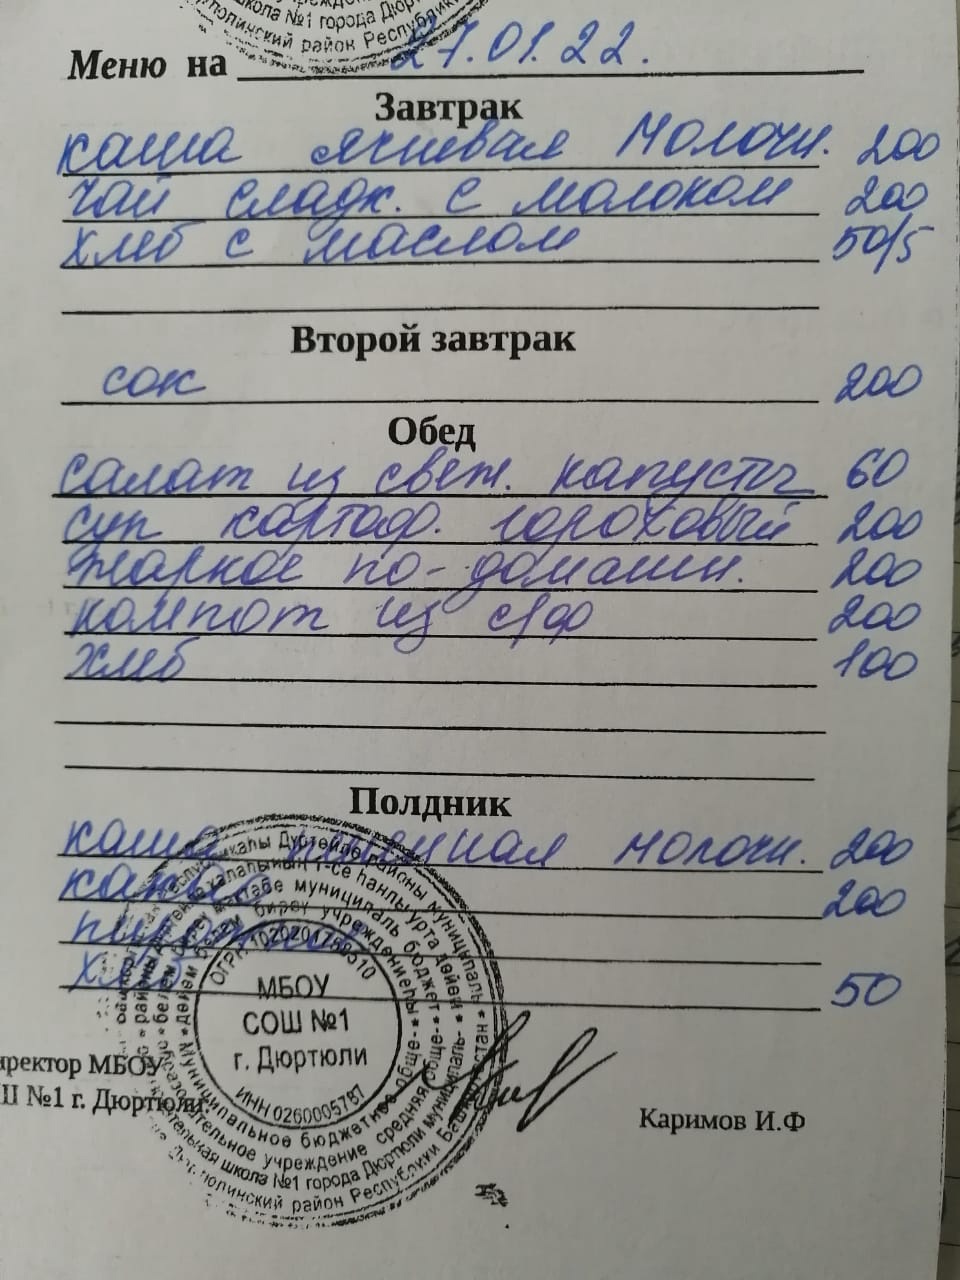 школа №1 города Дюр
полинский район Республики
Меню на 27.01.22.
Завтрак
каша ячневая молочн. 200
чай сладк. с молоком 200
хлеб с маслом 50/5
Второй завтрак
сок 200
Обед
салат из свеж. капусты 60
суп картоф. гороховый 200
жаркое по-домашн. 200
компот из с/ф 200
хлеб 100
Полдник
каша молочн. 200
200
хлеб 50
ОГРН 1020201759510
МБОУ
СОШ №1
г. Дюртюли
ИНН 0260005787
Муниципальное бюджетное обще-
образовательное учреждение средняя обще-
школа №1 города Дюртюли муниципаль-
район Республики Башкортостан
иректор МБОУ
Ш №1 г. Дюртюли:
Каримов И.Ф